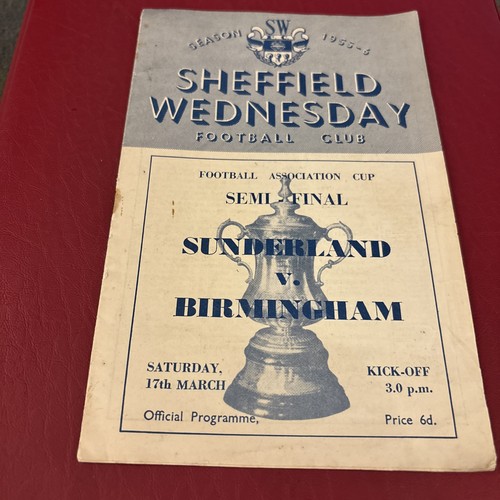 SW
SEASON 1955-6
SHEFFIELD
WEDNESDAY
FOOTBALL CLUB
FOOTBALL ASSOCIATION CUP
SEMI-FINAL
SUNDERLAND
v.
BIRMINGHAM
SATURDAY,
17th MARCH
KICK-OFF
3.0 p.m.
Official Programme,
Price 6d.